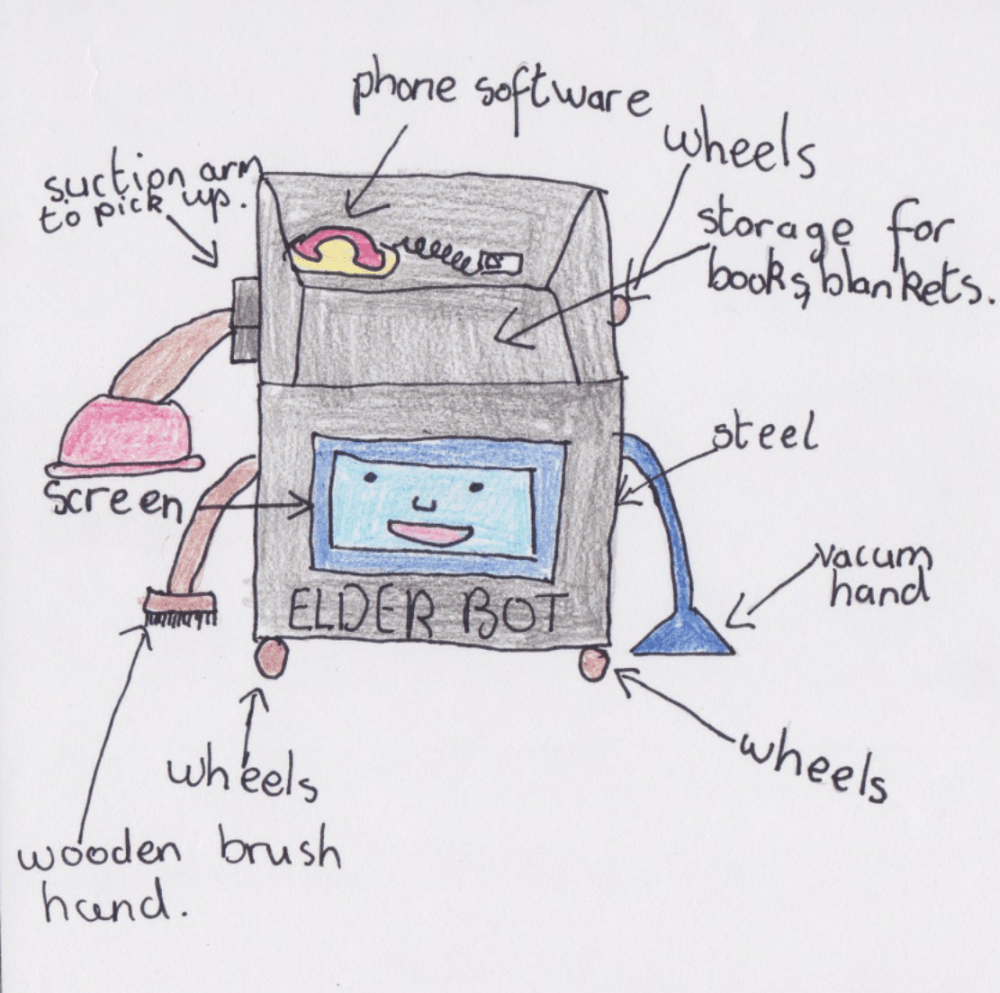 phone software
wheels
suction arm
to pick up.
storage for
books, blankets.
steel
screen
vacum
hand
ELDER BOT
wheels
wheels
wooden brush
hand.